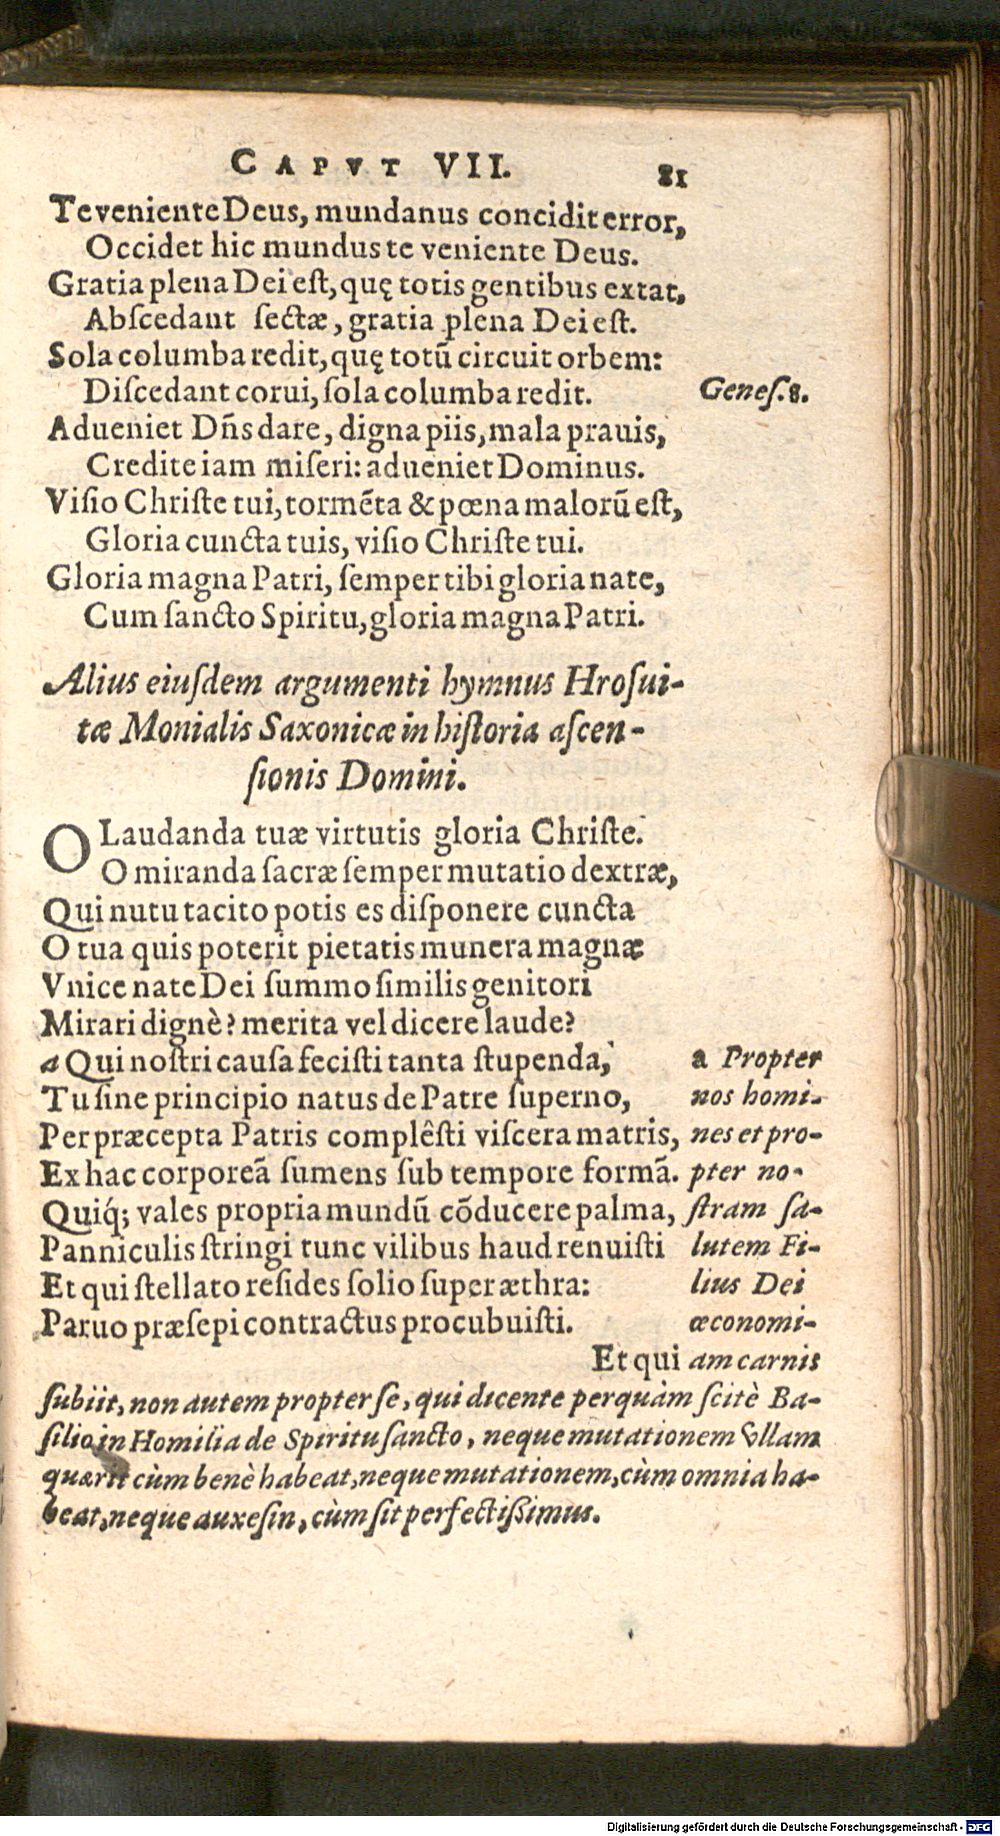 CAPVT VII. 81
Te veniente Deus, mundanus concidit error,
Occidet hic mundus te veniente Deus.
Gratia plena Dei est, quę totis gentibus extat,
Abscedant sectæ, gratia plena Dei est.
Sola columba redit, quę totū circuit orbem:
Discedant corui, sola columba redit.
Genes. 8.
Adueniet Dñs dare, digna piis, mala prauis,
Credite iam miseri: adueniet Dominus.
Visio Christe tui, tormēta & pœna malorū est,
Gloria cuncta tuis, visio Christe tui.
Gloria magna Patri, semper tibi gloria nate,
Cum sancto Spiritu, gloria magna Patri.
Alius eiusdem argumenti hymnus Hrosui-
tæ Monialis Saxonicæ in historia ascen-
sionis Domini.
O Laudanda tuæ virtutis gloria Christe.
O miranda sacræ semper mutatio dextræ,
Qui nutu tacito potis es disponere cuncta
O tua quis poterit pietatis munera magnæ
Vnice nate Dei summo similis genitori
Mirari dignè? merita vel dicere laude?
a Qui nostri causa fecisti tanta stupenda,
Tu sine principio natus de Patre superno,
Per præcepta Patris complêsti viscera matris,
Ex hac corporeā sumens sub tempore formā.
Quiq́; vales propria mundū cōducere palma,
Panniculis stringi tunc vilibus haud renuisti
Et qui stellato resides solio super æthra:
Paruo præsepi contractus procubuisti.
Et qui
a Propter
nos homi-
nes et pro-
pter no-
stram sa-
lutem Fi-
lius Dei
œconomi-
am carnis
subiit, non autem propter se, qui dicente perquàm scitè Ba-
silio in Homilia de Spiritu sancto, neque mutationem vllam
quærit cùm benè habeat, neque mutationem, cùm omnia ha-
beat, neque auxesin, cùm sit perfectissimus.
Digitalisierung gefördert durch die Deutsche Forschungsgemeinschaft - DFG